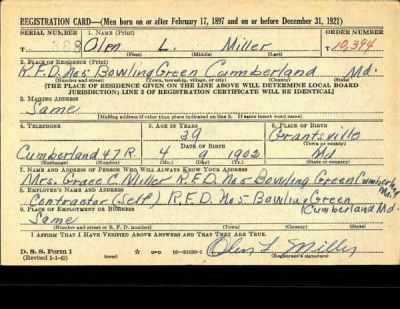 REGISTRATION CARD—(Men born on or after February 17, 1897 and on or before December 31, 1921)
SERIAL NUMBER 1. NAME (Print) ORDER NUMBER
T- 368 Olen L. Miller T 10,394
(First) (Middle) (Last)
2. PLACE OF RESIDENCE (Print)
R.F.D. No 5 Bowling Green Cumberland Md.
(Number and street) (Town, township, village, or city) (County) (State)
[THE PLACE OF RESIDENCE GIVEN ON THE LINE ABOVE WILL DETERMINE LOCAL BOARD
JURISDICTION; LINE 2 OF REGISTRATION CERTIFICATE WILL BE IDENTICAL]
3. MAILING ADDRESS
Same
[Mailing address if other than place indicated on line 2. If same insert word same]
4. TELEPHONE 5. AGE IN YEARS 6. PLACE OF BIRTH
39 Grantsville
DATE OF BIRTH (Town or county)
Cumberland 47 R. 4 9 1902 Md
(Exchange) (Number) (Mo.) (Day) (Yr.) (State or country)
7. NAME AND ADDRESS OF PERSON WHO WILL ALWAYS KNOW YOUR ADDRESS
Mrs. Grace C. Miller R.F.D. No 5 Bowling Green Cumberland Md.
8. EMPLOYER'S NAME AND ADDRESS
Contractor (Self) R.F.D. No 5 Bowling Green Cumberland Md.
9. PLACE OF EMPLOYMENT OR BUSINESS
Same
(Number and street or R. F. D. number) (Town) (County) (State)
I AFFIRM THAT I HAVE VERIFIED ABOVE ANSWERS AND THAT THEY ARE TRUE.
D. S. S. Form 1
(Revised 1-1-42) (over) 16—21630-1 Olen L Miller
(Registrant's signature)